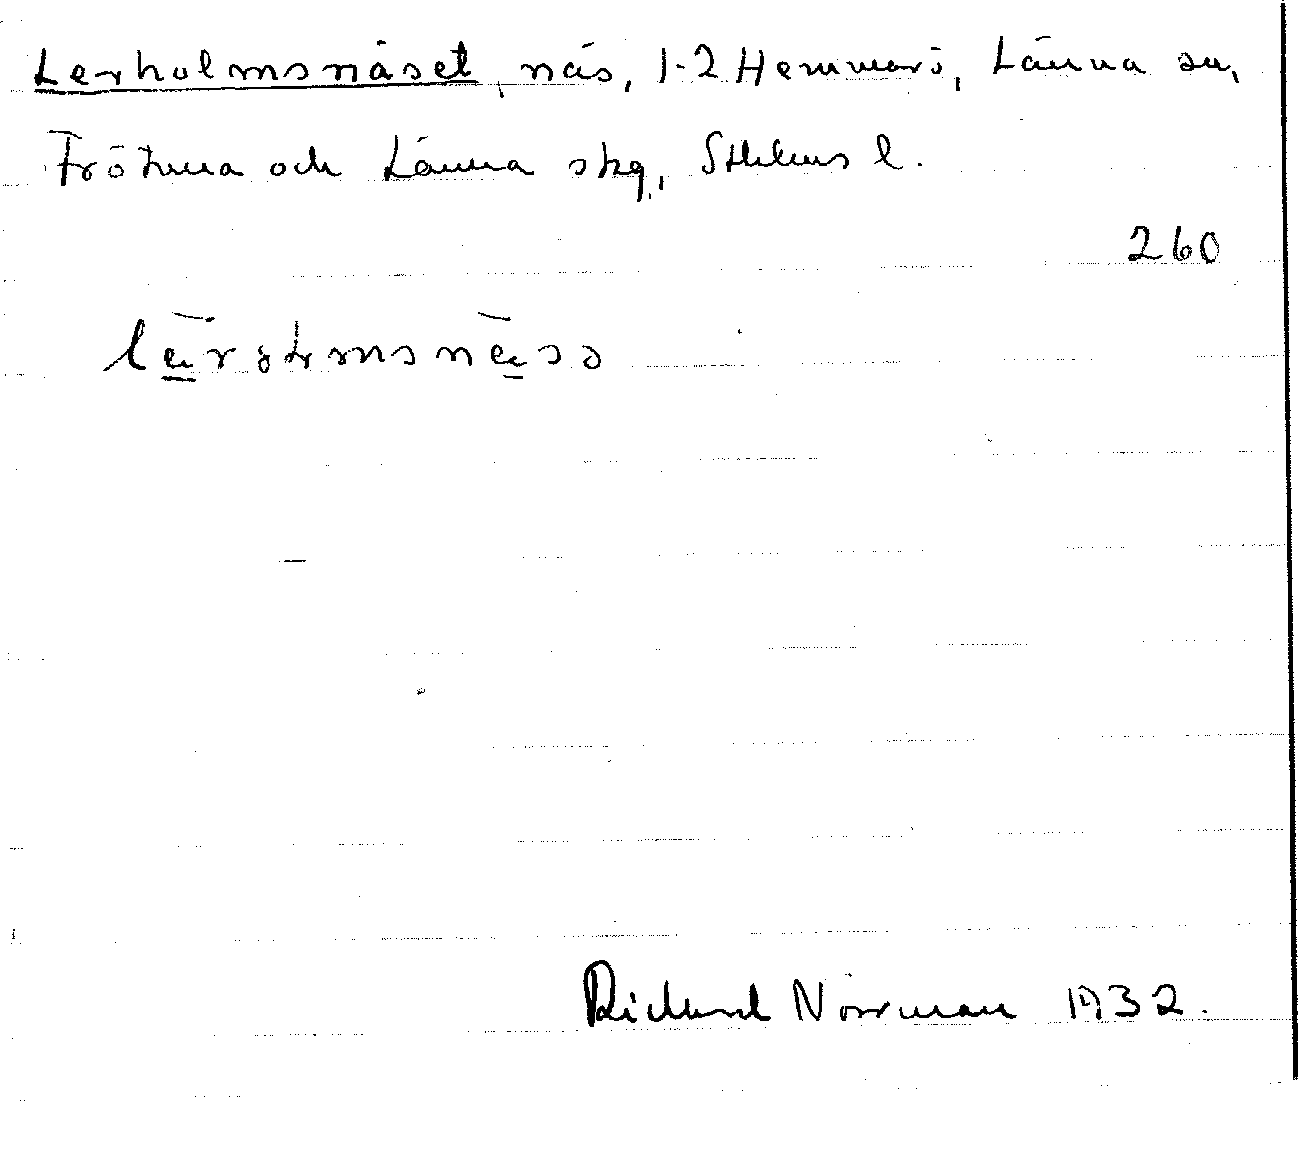 Lerholmsnäset, näs, 1-2 Hemmarö, Länna sn,
Frötuna och Länna skg, Sthlms l.
260
Richard Norrman 1932.